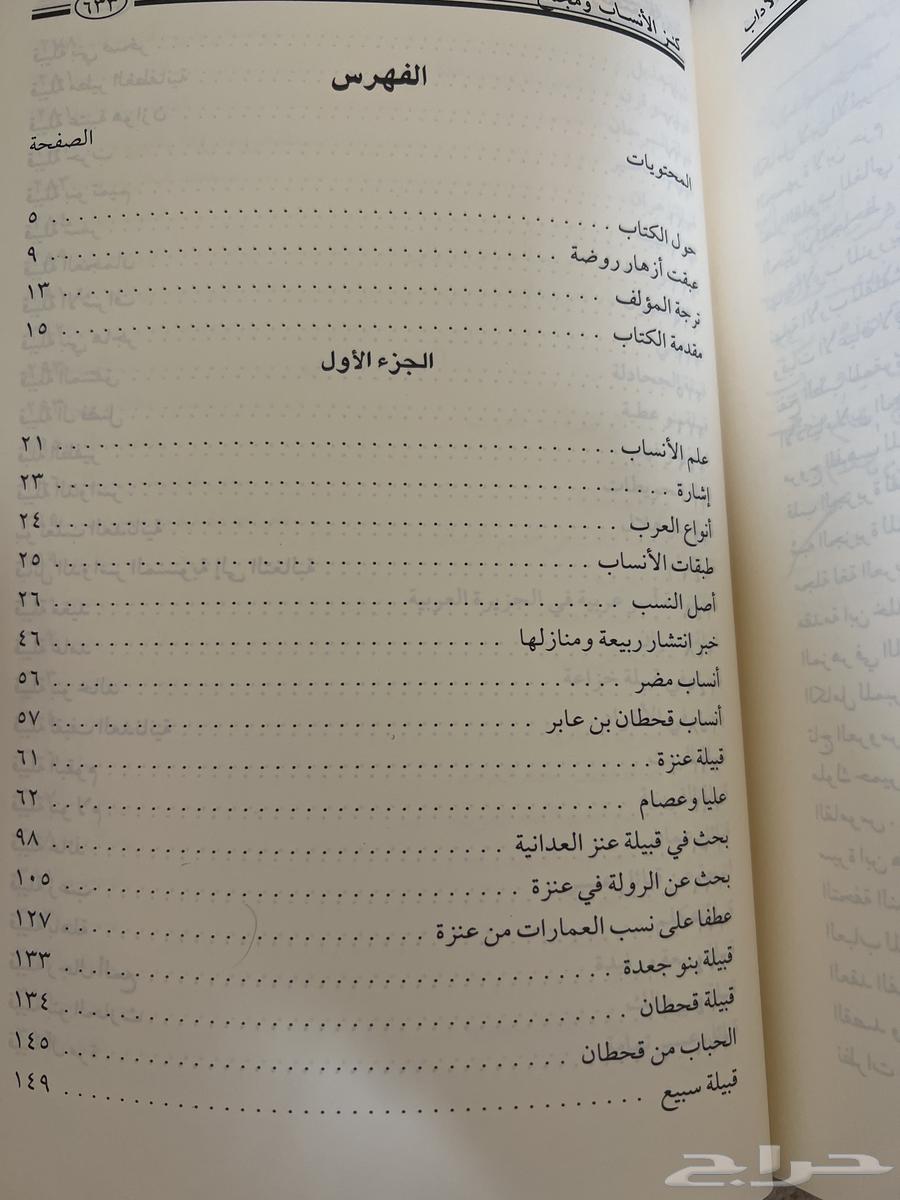 كنز الأنساب ٦٣٣
الفهرس
المحتويات الصفحة
حول الكتاب ٥
عبقت أزهار روضة ٩
ترجة المؤلف ١٣
مقدمة الكتاب ١٥
الجزء الأول
علم الأنساب ٢١
إشارة ٢٣
أنواع العرب ٢٤
طبقات الأنساب ٢٥
أصل النسب ٢٦
خبر انتشار ربيعة ومنازلها ٤٦
أنساب مضر ٥٦
أنساب قحطان بن عابر ٥٧
قبيلة عنزة ٦١
عليا وعصام ٦٢
بحث في قبيلة عنز العدانية ٩٨
بحث عن الرولة في عنزة ١٠٥
عطفا على نسب العمارات من عنزة ١٢٧
قبيلة بنو جعدة ١٣٣
قبيلة قحطان ١٣٤
الحباب من قحطان ١٤٥
قبيلة سبيع ١٤٩
حراج